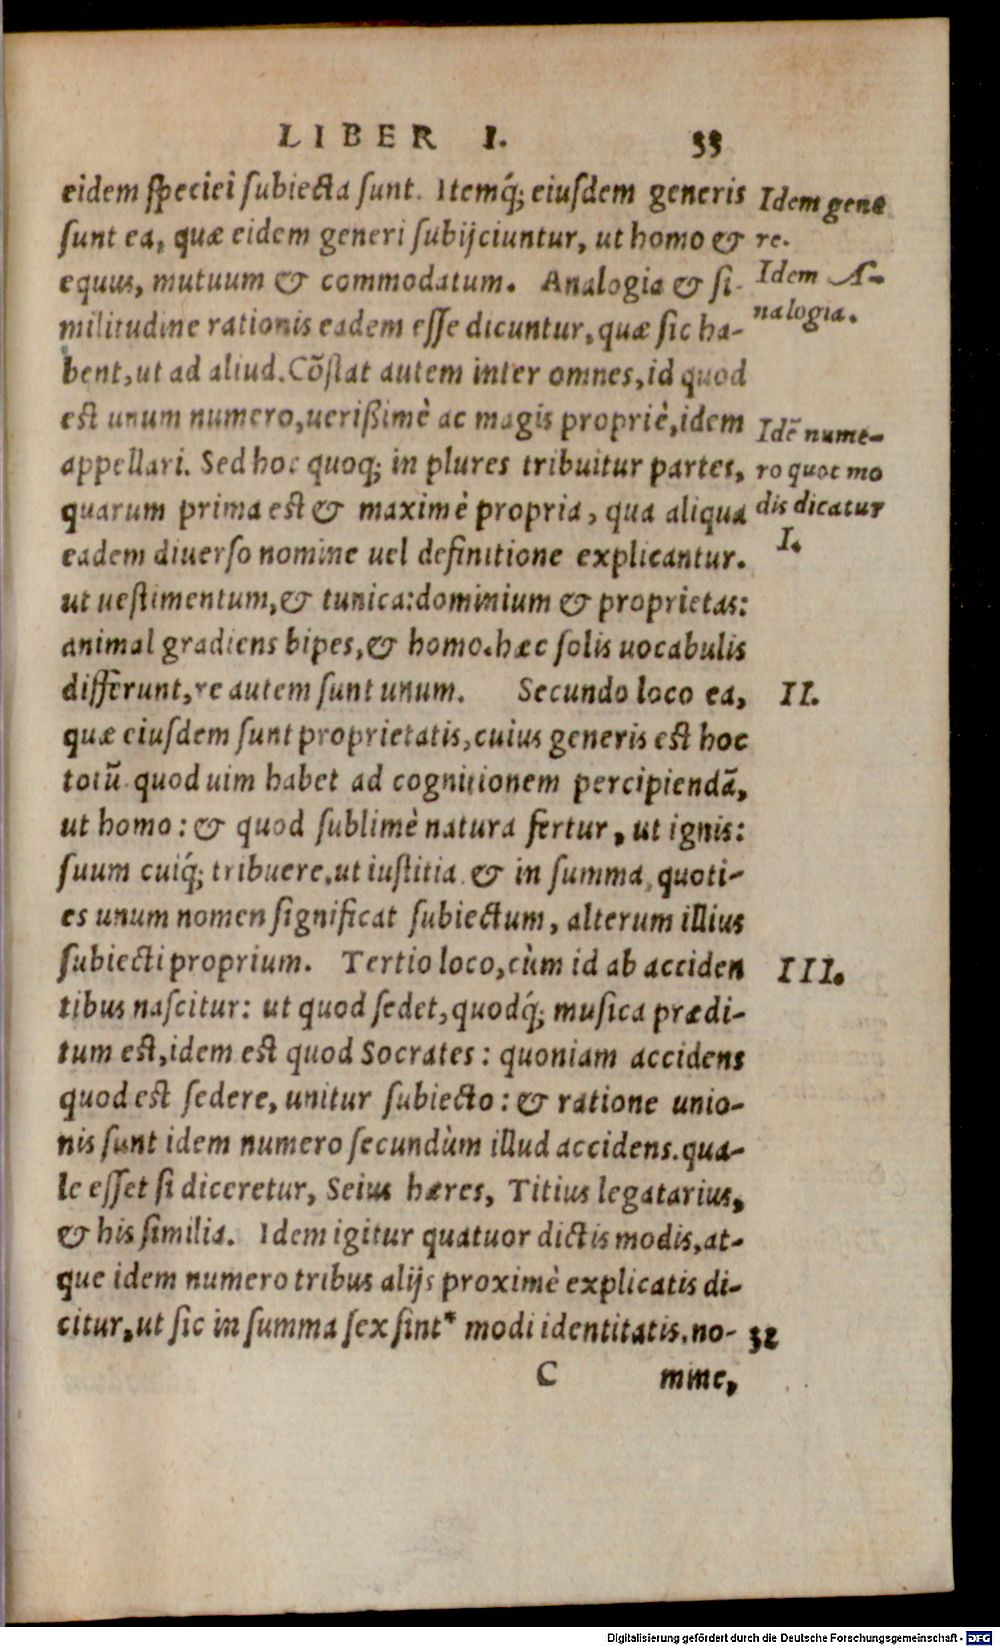 LIBER I. 33
eidem speciei subiecta sunt. Itemq́; eiusdem generis
sunt ea, quæ eidem generi subijciuntur, ut homo &
equus, mutuum & commodatum. Analogia & si-
militudine rationis eadem esse dicuntur, quæ sic ha-
bent, ut ad aliud. Cõstat autem inter omnes, id quod
est unum numero, uerißimè ac magis propriè, idem
appellari. Sed hoc quoq; in plures tribuitur partes,
quarum prima est & maximè propria, qua aliqua
eadem diuerso nomine uel definitione explicantur.
ut uestimentum, & tunica: dominium & proprietas:
animal gradiens bipes, & homo. hæc solis uocabulis
differunt, re autem sunt unum. Secundo loco ea,
quæ eiusdem sunt proprietatis, cuius generis est hoc
totũ quod uim habet ad cognitionem percipiendã,
ut homo: & quod sublimè natura fertur, ut ignis:
suum cuiq́; tribuere, ut iustitia. & in summa, quoti-
es unum nomen significat subiectum, alterum illius
subiecti proprium. Tertio loco, cùm id ab acciden
tibus nascitur: ut quod sedet, quodq́; musica prædi-
tum est, idem est quod Socrates: quoniam accidens
quod est sedere, unitur subiecto: & ratione unio-
nis sunt idem numero secundùm illud accidens. qua-
le esset si diceretur, Seius hæres, Titius legatarius,
& his similia. Idem igitur quatuor dictis modis, at-
que idem numero tribus alijs proximè explicatis di-
citur, ut sic in summa sex sint* modi identitatis. no-
C mine,
Idem gene
re.
Idem A-
nalogia.
Idẽ nume-
ro quot mo
dis dicatur
I.
II.
III.
32
Digitalisierung gefördert durch die Deutsche Forschungsgemeinschaft - DFG